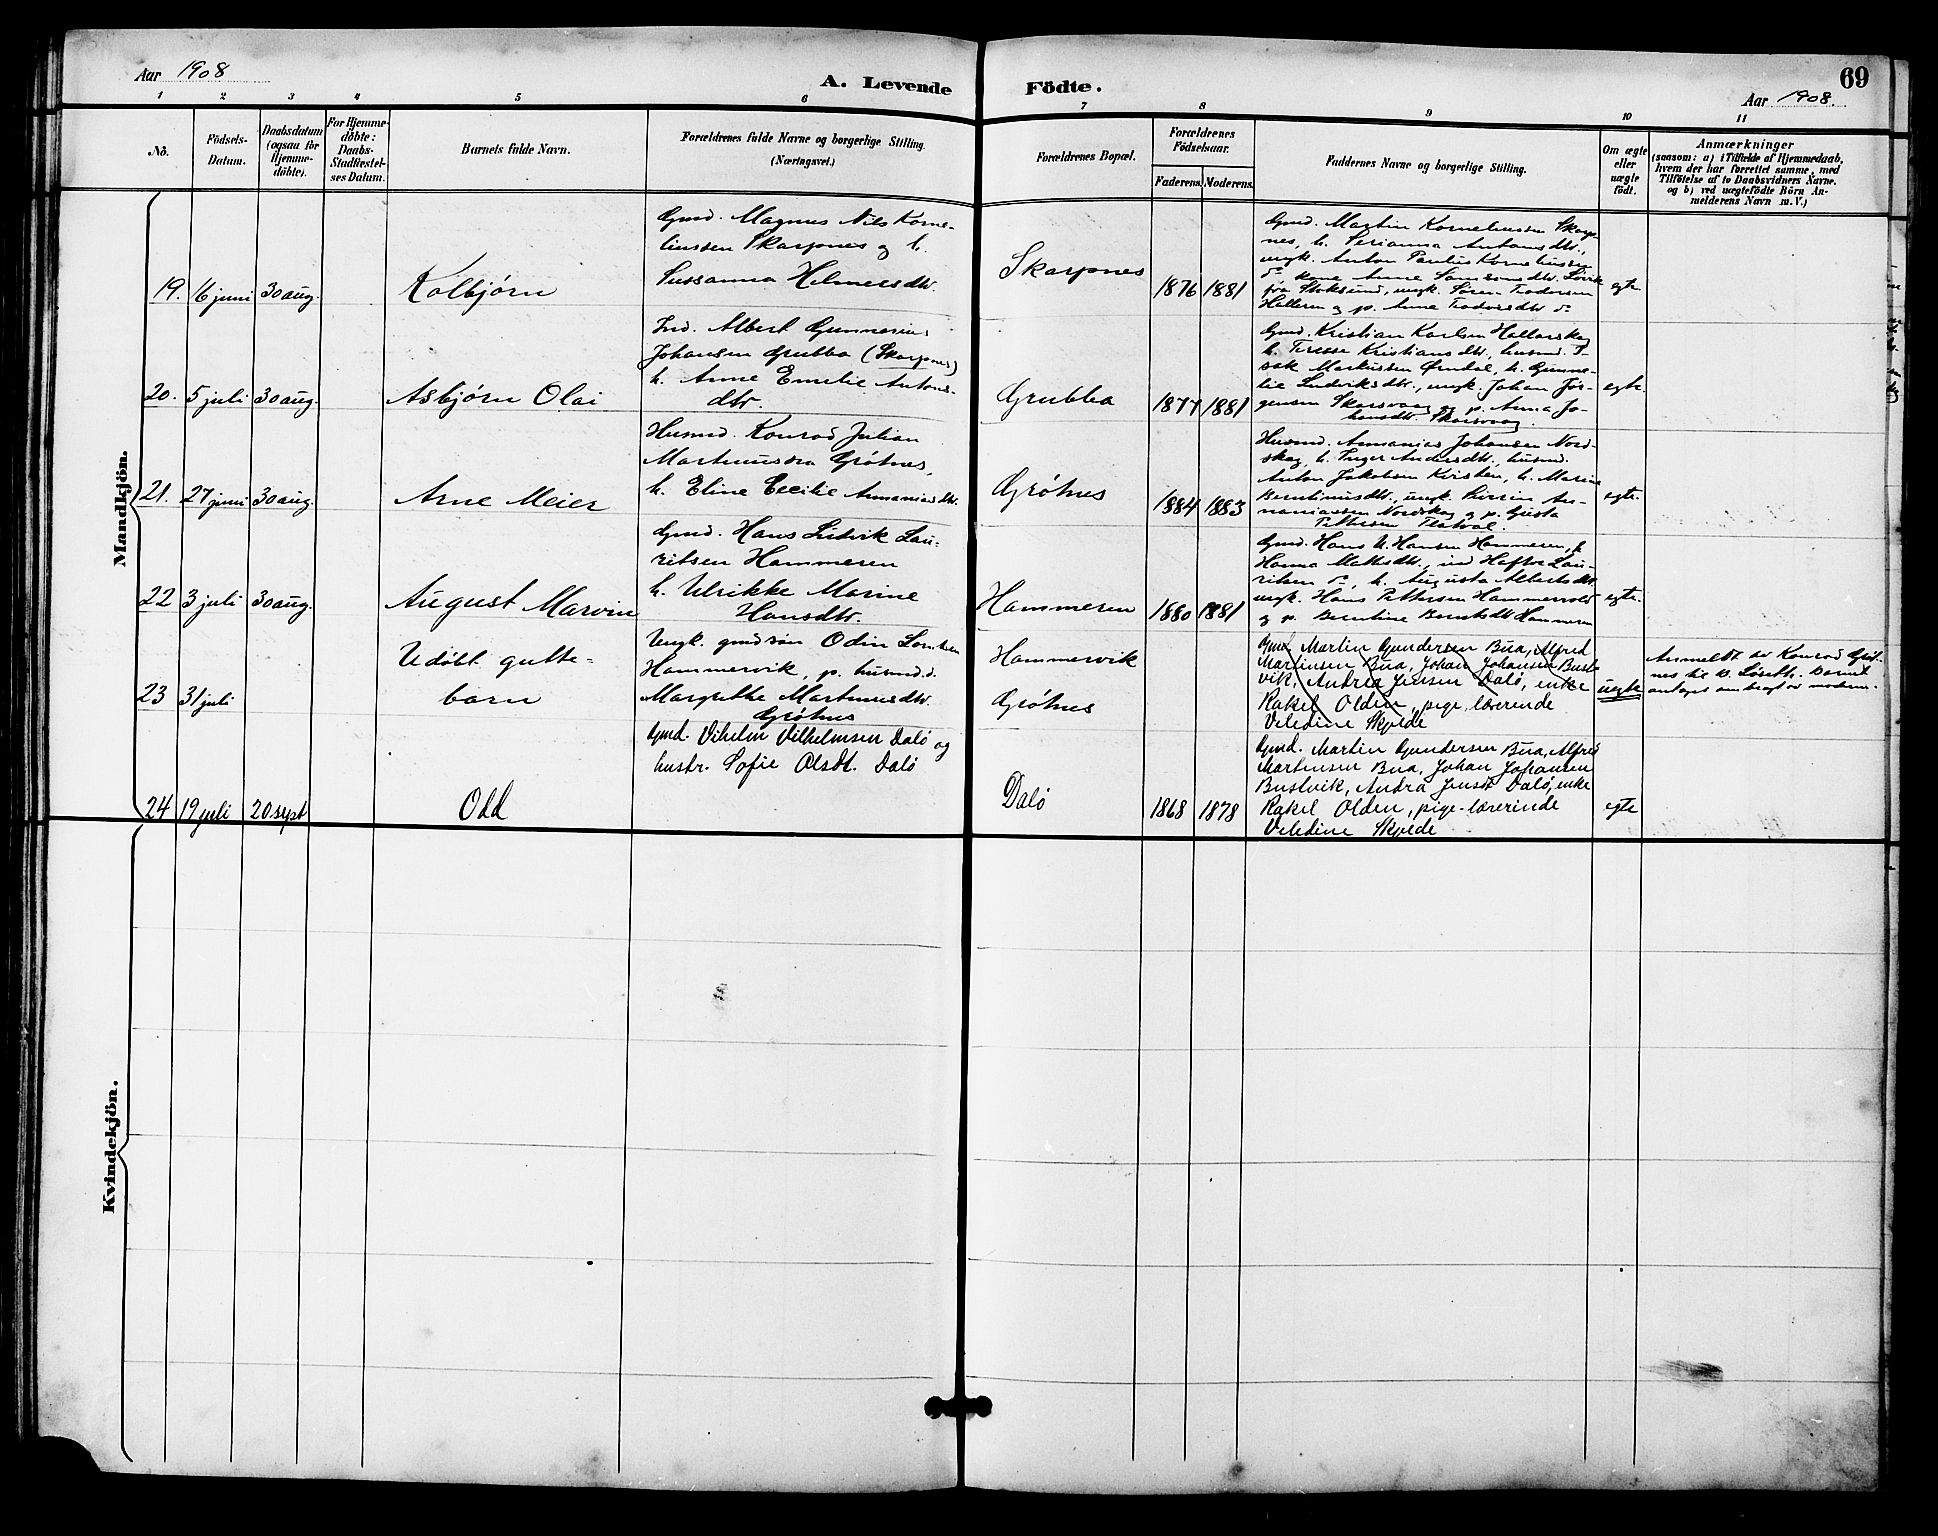 Aar 1908
A. Levende Födte.
69
Aar 1908.
1 2 3 4 5 6 7 8 9 10 11
No.
Födsels-
Datum.
Daabsdatum
(ogsaa for
Hjemme-
döbte).
For Hjemme-
döbte:
Daabs-
Stadfæstel-
ses Datum.
Barnets fulde Navn.
Forældrenes fulde Navne og borgerlige Stilling.
(Næringsvei.)
Forældrenes Bopæl.
Forældrenes
Födselsaar.
Faderens. Moderens.
Faddernes Navne og borgerlige Stilling.
Om ægte
eller
uægte
födt.
Anmærkninger
(saasom: a) i Tilfælde af Hjemmedaab,
hvem der har forrettet samme, med
Tilföielse af to Daabsvidners Navne,
og b) ved uægtefödte Börn An-
melderens Navn m. V.)
Mandkjön.
19. 16 juni 30 aug. Kolbjørn
Gmd. Magnus Nils Korne-
liussen Skarpnes og h.
Sussanna Helmersdtr.
Skarpnes 1876 1881
Gmd. Martin Korneliussen Skarp-
nes, h. Serianna Antonsdtr.
ungk. Anton Paulus Korneliussen
do kone Anne Samsonsdtr. Sørvik
fra Stoksund, ungk. Søren Teodorsen
Helleren og p. Anna Teodorsdtr. do
egte
20. 5 juli 30 aug. Asbjørn Olai
Ind. Albert Gunnerius
Johansen Grubba (Skarpnes)
h. Anne Emelie Antons-
dtr.
Grubba 1877 1881
Gmd. Kristian Karlsen Hellarskag
h. Teresse Kristiansdtr., husmd. I-
sak Markussen Ørndal, h. Gunne-
lie Ludviksdtr., ungk. Johan Jør-
gensen Skarsvaag og p. Anna Jo-
hansdtr. Skarsvaag.
egte.
21. 27 juni 30 aug. Arne Meier
Husmd. Konrad Julian
Martinussen Grøtnes,
h. Eline Cecilie Annaniasdtr.
Grøtnes 1884 1883
Husmd. Annanias Johansen Nord-
skag, h. Inger Andersdtr., husmd.
Anton Jakobsen Kvisten, h. Marie
Berntinusdtr., ungk. An-
naniassen Nordskag og p. Gusta
Pettersen Flatval.
egte.
22 3 juli 30 aug. August Marvin
Gmd. Hans Ludvik Lau-
ritsen Hammeren
h. Ulrikke Marine
Hansdtr.
Hammeren 1880 1881
Gmd. Hans U. Hansen Hammeren, h.
Hanna Mathisdtr., ind. Haftor Lau-
ritsen do, h. Augusta Albertsdtr.
ungk. Hans Pettersen Hammervold
og p. Berntine Berntsdtr. Hammeren
egte.
23 31 juli Udøbt gutte-
barn
Ungk. gmdsøn Odin Lorntsen
Hammervik, p. husmd. d.
Margrethe Martinusdtr.
Grøtnes
Hammervik
Grøtnes
Gmd. Martin Gundersen Bua, Alfred
Martinsen Bua, Johan Johansen Bust-
vik, Andrea Jensen Dalø, enke
Rakel Olden, pige, lærerinde
Veledine Skjelde
uegte
Anmeldt av Konrad Grøt-
nes til K. Løseth. Barnet
antages ombragt av moderen.
24 19 juli 20. sept Odd
Gmd. Vihelm Vilhelmsen Dalø og
hustr. Sofie Olsdt. Dalø
Dalø 1868 1878
Gmd. Martin Gundersen Bua, Alfred
Martinsen Bua, Johan Johansen
Bustvik, Andra Jensen Dalø, enke
Rakel Olden, pige-lærerinde
Veledine Skjelde
egte
Kvindekjön.